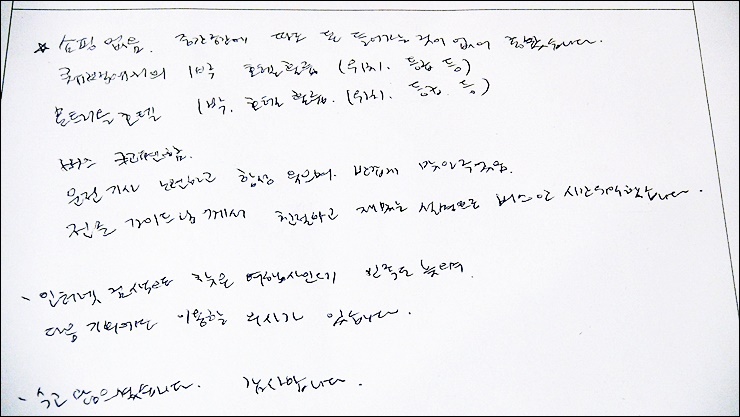 * 쇼핑 없음. 중간중간에 따로 돈 들어가는 것이 없어 좋았습니다.
퀘벡에서의 1박 호텔 훌륭 (위치, 등급 등)
몬트리올 호텔 1박, 호텔 훌륭. (위치, 등급, 등)
버스 쾌적함.
운전기사 노련하고 항상 웃으며 반갑게 맞아주었음.
가이드님께서 친절하고 재밌는 설명으로 버스안 시간이 했습니다.
- 인터넷 검색으로 찾은 여행사인데 만족도 높으며
다음 기회에도 이용할 의사가 있습니다.
- 수고 많으셨습니다. 감사합니다.